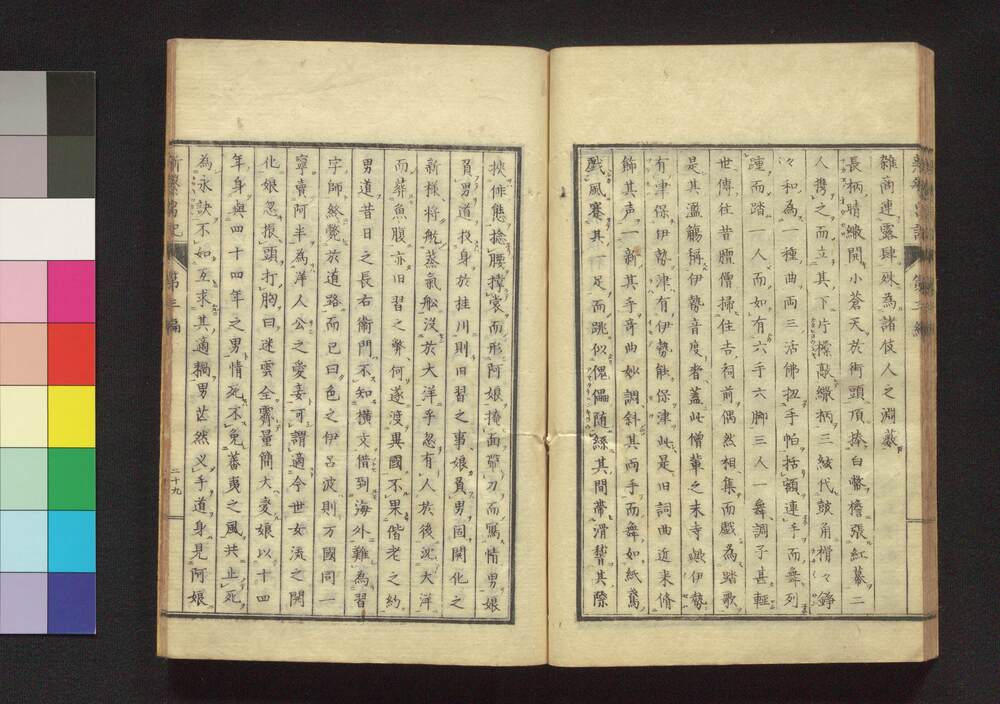 雑商連露肆殊為諸伎人之淵藪
長柄晴繖開小蒼天於街頭頂捧白幣檐張紅幕二
人携之而立其下片檪敲繖柄三絃代皷角楷々錚
々和為一種曲両三活佛扭手帕括額連手而舞列
踵而踏一人而如有六手六脚三人一舞調子甚軽
世傳往昔曁僧掃住吉祠前偶然相集而戯為踏歌
是其濫觴稱伊勢音度者蓋此僧輩之末寺與伊勢
有津保伊勢津有伊勢能保津此是旧詞曲近来脩
餝其声一新其手哥曲妙調斜其両手而舞如紙鳶
戯風蹇其一足而跳似傀儡随絲其間帯滑瞽其際
挾俳態捻腰擡裳而形阿娘掩面帶刀而寫情男娘
負男道投身於桂川則旧習之事娘負男固開化之
新様将航蒸氣舩没於大洋乎忽有人於後沈大洋
而葬魚腹亦旧習之弊何遂渡異國不果偕老之約
男道昔日之長右衛門不知横文借到海外難為習
字師終斃於道路而已曰色之伊呂波則万國同一
寧賣阿半為洋人公之愛妾可謂適今世女流之開
化娘忽振頭打胸曰迷雲全霽量簡大変娘以十四
年身與四十四年之男情死不免蕃夷之風共止死
為永訣不如互求其適耦男茫然义手道身見阿娘
新繁昌記 第三編 二十九